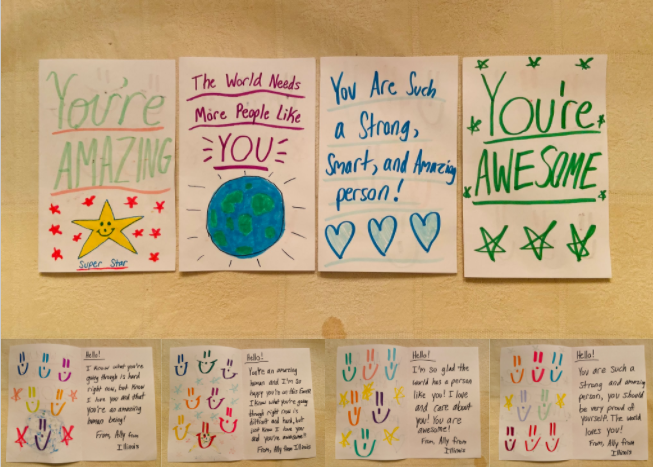 You're
AMAZING
Super Star
The World Needs
More People Like
YOU
You Are Such
a Strong,
Smart, and Amazing
person!
You're
AWESOME
Hello!
I know what you're
going through is hard
right now, but know
I love you and that
you're an amazing
human being!
From, Ally from
Illinois
Hello!
You're an amazing
human and I'm so
happy you're on this
I know what you're going
through right now is
difficult and hard, but
just know I love you
and you're awesome!!
From, Ally from Illinois
Hello!
I'm so glad the
world has a person
like you! I love
and care about
you! You are
awesome!
From, Ally from
Illinois
Hello!
You are such a
strong and amazing
person, you should
be very proud of
yourself. The world
loves you!
From, Ally from Illinois